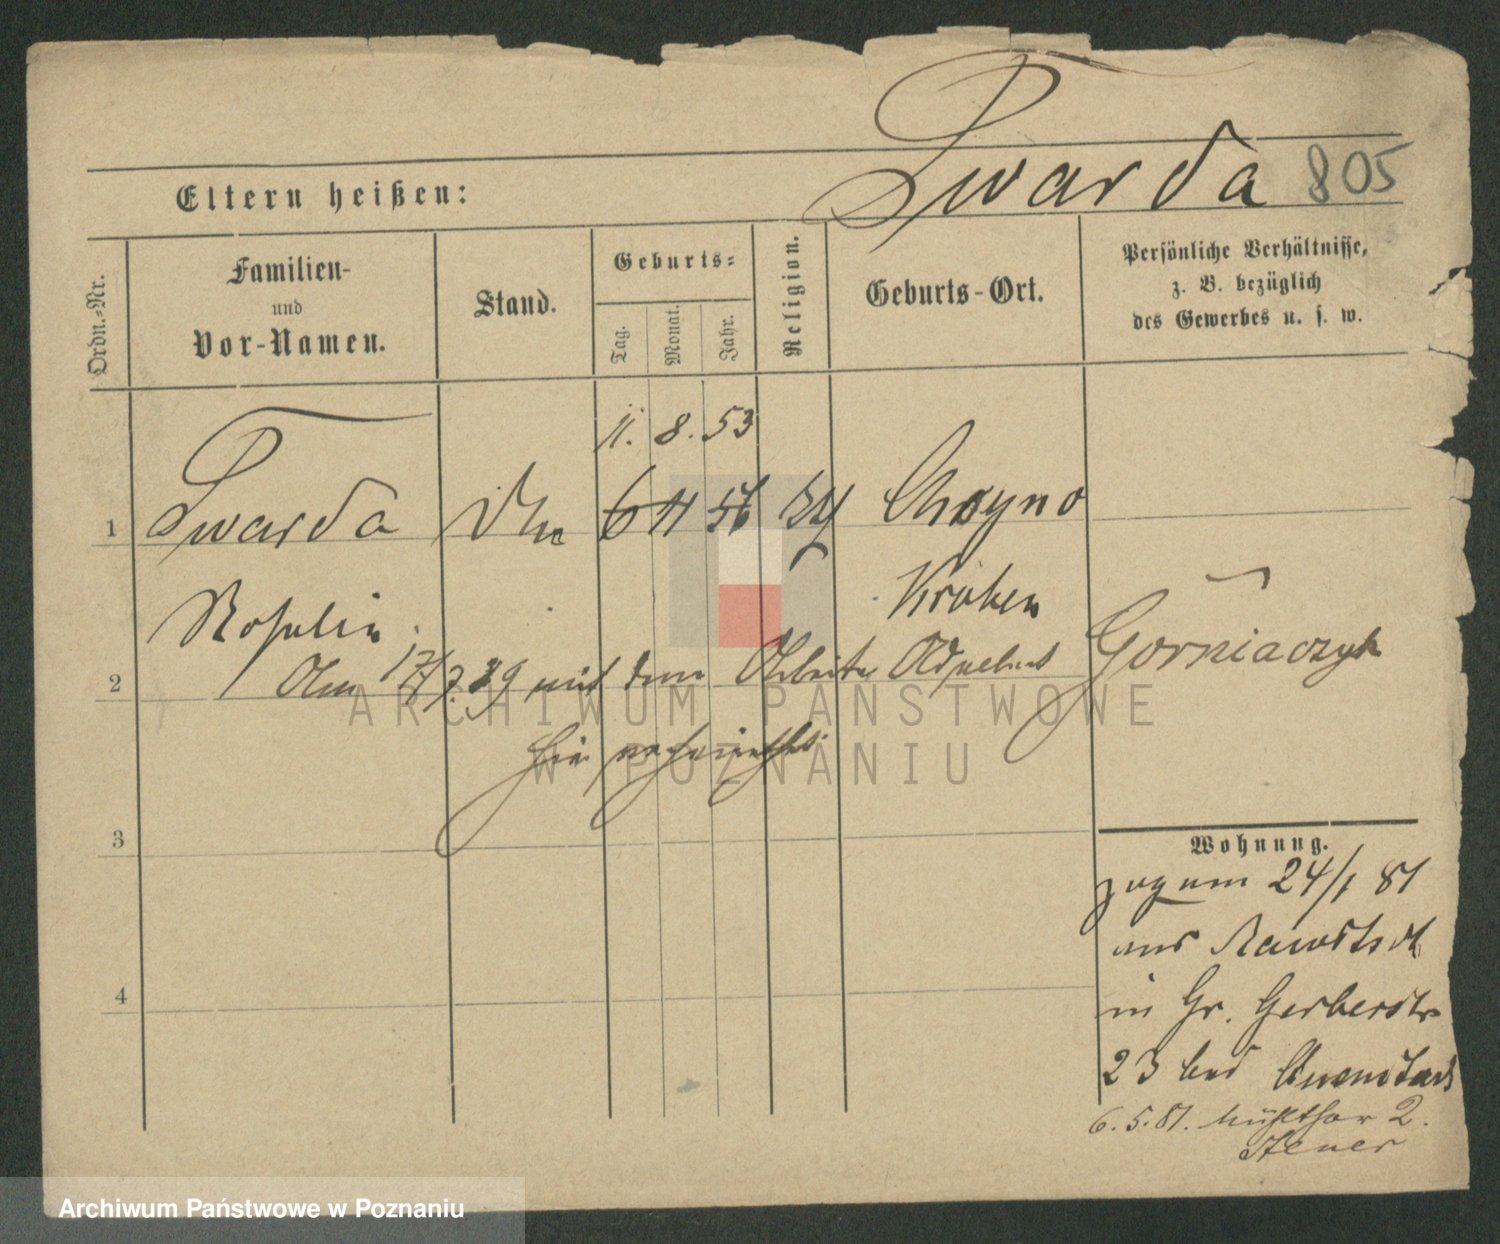 Twarda 805
Eltern heißen:
Ordn.-Nr.
Familien-
und
Vor-Namen.
Stand.
Geburts-
Tag.
Monat.
Jahr.
Religion.
Geburts-Ort.
Persönliche Verhältnisse,
z. B. bezüglich
des Gewerbes u. s. w.
11. 8. 53
1 Twarda 6 11 56 Choyno
Rosalie Kröben
2 Am 17/7. 89 mit dem Arbeiter Adalbert Górniaczyk
hier verheirathet
3
Wohnung.
zog am 24/1 81
aus Rawitsch
in Gr. Gerberstr
4
23 bei
6. 5. 81. Mühlthor 2.
ARCHIWUM PAŃSTWOWE
W POZNANIU
Archiwum Państwowe w Poznaniu